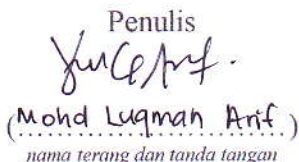 Penulis
(Mohd Luqman Arif)
nama terang dan tanda tangan